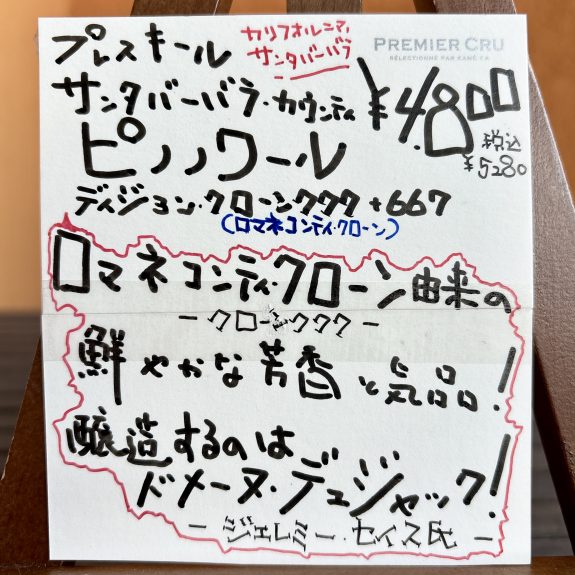 プレスキール
カリフォルニア,
サンタバーバラ
PREMIER CRU
SÉLECTIONNÉ PAR KAMÉYA
サンタバーバラ・カウンティ
¥4.800
税込
¥5280
ピノノワール
ディジョン・クローン777+667
(ロマネコンティ・クローン)
ロマネコンティ・クローン由来の
-クローン777-
鮮やかな芳香と気品!
醸造するのは
ドメーヌ・デュジャック!
-ジェレミー・セイス氏-